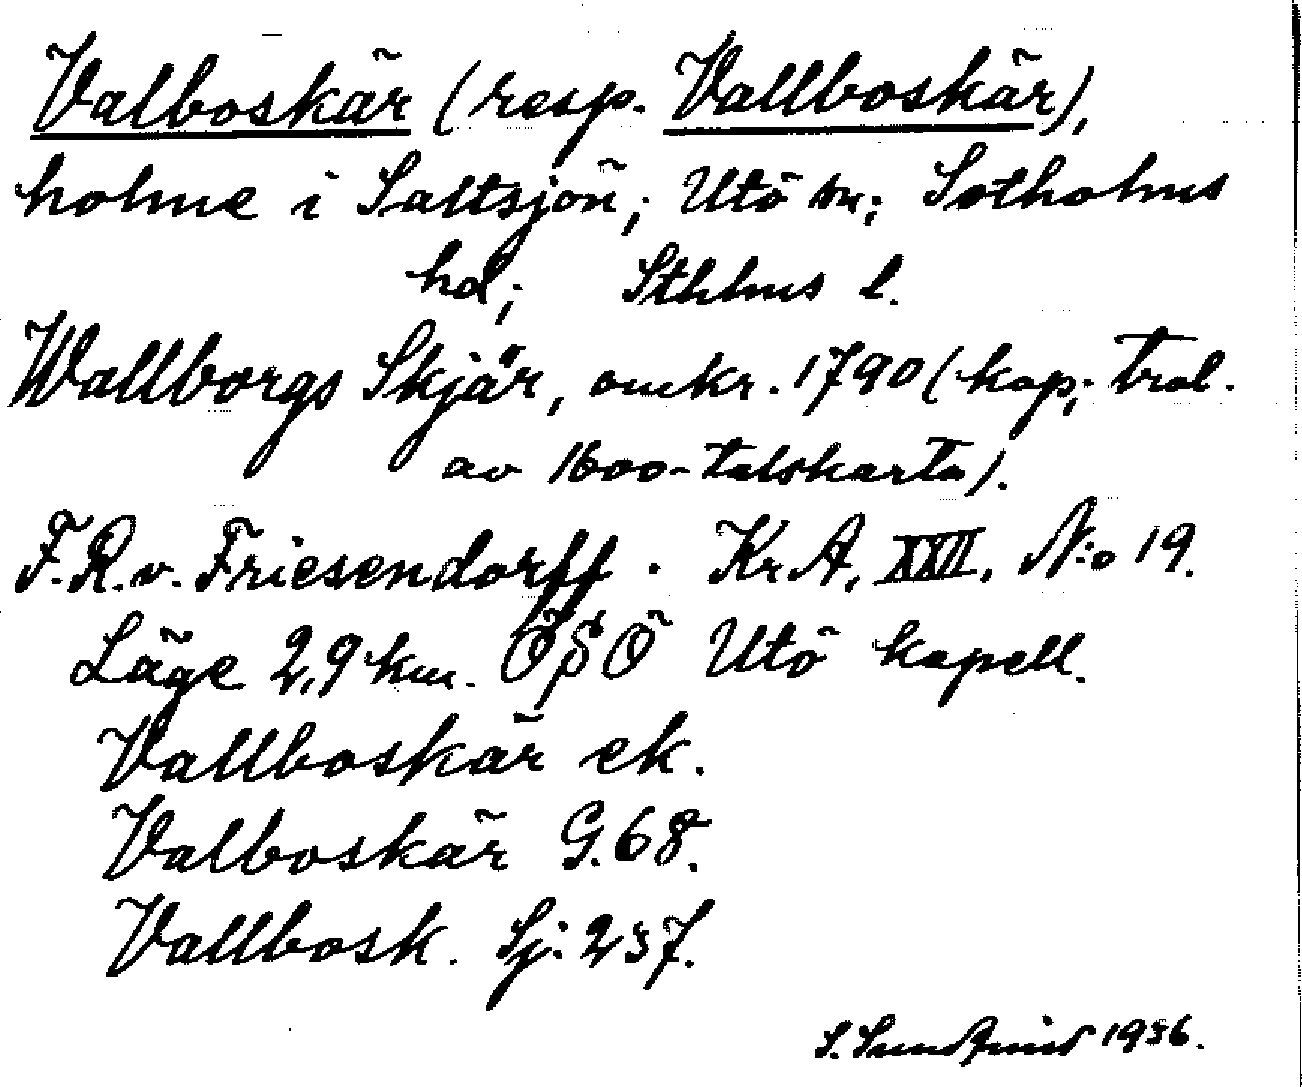 Valboskär (resp. Vallboskär),
holme i Saltsjön; Utö sn; Sotholms
hd; Sthlms l.
Wallborgs Skjär, omkr. 1790 (kop; trol.
av 1600-talskarta).
F.R.v. Friesendorff. Kr.A. XXII. N:o 19.
Läge 2,9 km. ÖSÖ Utö kapell.
Vallboskär ek.
Valboskär G.68.
Vallbosk. Sj: 237.
S. 1936.